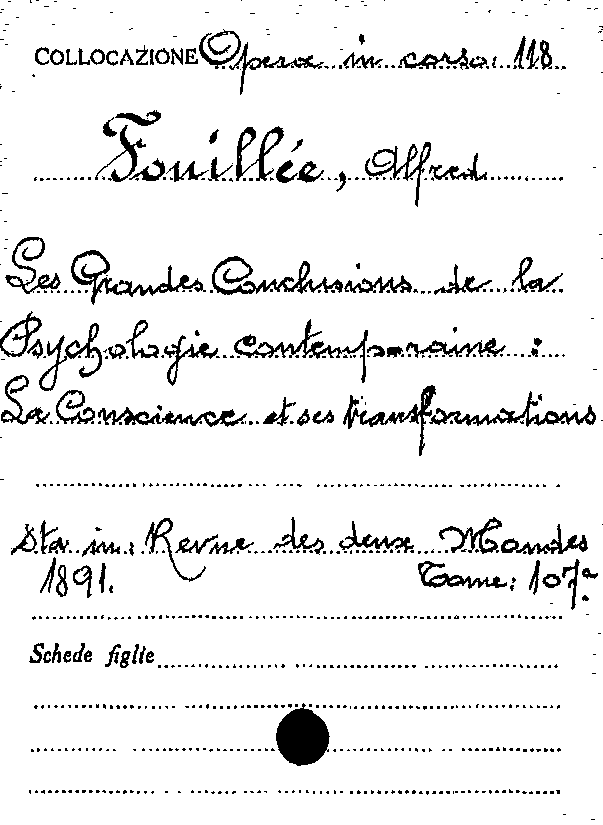 COLLOCAZIONE Opera in corso: 118
Fouillée, Alfred
Les Grandes Conclusions de la
Psychologie contemporaine :
La Conscience et ses transformations
Sta in: Revue des deux Mondes
1891. Tome: 107º
Schede figlie